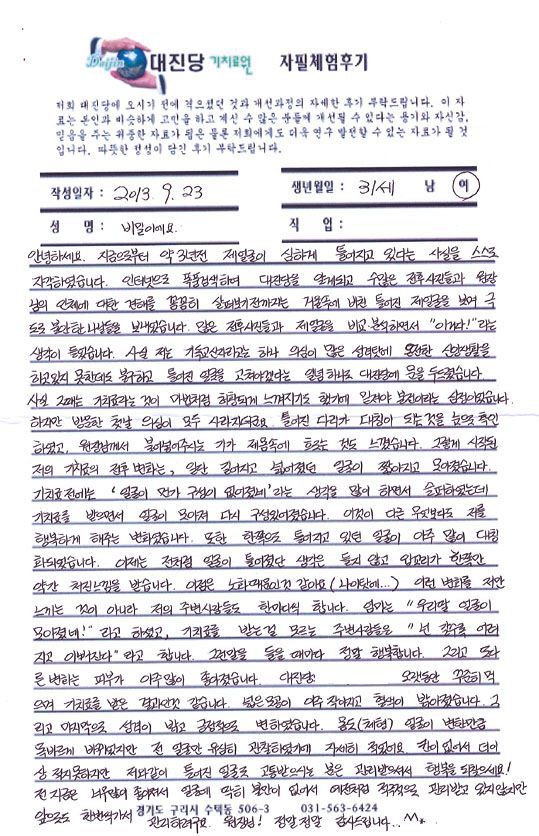 Deijin 대진당 기치료원 자필체험후기
저희 대진당에 오시기 전에 적으셨던 것과 개선과정의 자세한 후기 부탁드립니다. 이 자
료는 본인과 비슷하게 고민을 하고 계신 수 많은 분들에게 개선될 수 있다는 용기와 자신감,
믿음을 주는 귀중한 자료가 됨은 물론 저희에게도 더욱 연구 발전할 수 있는 자료가 될 것
입니다. 따뜻한 정성이 담긴 후기 부탁드립니다.
작성일자 : 2013. 9. 23 생년월일 : 31세 남 여
성 명 : 비밀이에요. 직 업 :
안녕하세요. 지금으로부터 약 3년전 제얼굴이 심하게 틀어지고 있다는 사실을 스스로
자각하였습니다. 인터넷으로 폭풍검색하여 대진당을 알게되고 수많은 전후사진들과 원장
님의 인체에 대한 견해를 꼼꼼히 살펴보기전까지는 거울속에 비친 틀어진 제얼굴을 보며 극
도로 불안한 나날들을 보내었습니다. 많은 전후사진들과 제얼굴을 비교분석하면서 "이거다!" 라는
생각이 들었습니다. 사실 저는 기독교신자라고는 하나 의심이 많은 성격탓에 온전한 신앙생활을
하고있지 못한데도 불구하고 틀어진 얼굴을 고쳐야겠다는 열념하나로 대진당에 문을 두드렸습니다.
사실 그때는 기치료라는 것이 마법처럼 허황되게 느껴지기도 했기에 밑져야 본전이라는 심정이었습니다.
하지만 방문한 첫날 의심이 모두 사라지더라고요. 틀어진 다리가 대칭이 되는것을 눈으로 확인
하였고, 원장님께서 불어넣어주시는 기가 제몸속에 흐르는 것도 느꼈습니다. 그렇게 시작된
저의 기치료의 전후변화는, 일단 길어지고 넓어졌던 얼굴이 짧아지고 모아졌습니다.
기치료전에는 '얼굴이 먼가 구심이 없어졌네' 라는 생각을 많이 하면서 슬퍼하였는데
기치료를 받으면서 얼굴이 모아져 다시 구심있어졌습니다. 이것이 다른 무엇보다도 저를
행복하게 해주는 변화였습니다. 또한 한쪽으로 틀어지고 있던 얼굴이 아주 많이 대칭
화되었습니다. 이제는 전처럼 얼굴이 틀어졌단 생각은 들지 않고 입꼬리가 한쪽만
약간 처진느낌을 받습니다. 이점은 노화때문인것 같아요(나이탓에...) 이런 변화를 저만
느끼는 것이 아니라 저의 주변사람들도 한마디씩 합니다. 엄마는 "우리딸 얼굴이
모아졌네!" 라고 하였고, 기치료를 받는걸 모르는 주변사람들은 "넌 갈수록 어려
지고 이뻐진다" 라고 합니다. 그런말을 들을때마다 정말 행복합니다. 그리고 또다
른 변화는 피부가 아주많이 좋아졌습니다. 대진당 오랫동안 꾸준히 먹
으며 기치료를 받은 결과인것 같습니다. 넓은모공이 아주 작아지고 혈색이 밝아졌습니다. 그
리고 마지막으로 성격이 밝고 긍정적으로 변하였습니다. 몸도(체형) 얼굴이 변한만큼
똑바르게 바뀌었지만 전 얼굴만 유심히 관찰하였기에 자세히 적었어요. 칸이없어서 더이
상 적지못하지만 저와같이 틀어진 얼굴로 고통받으시는 분은 관리받으셔서 행복을 되찾으세요!
전 지금은 너무많이 좋아져서 얼굴에 딱히 불만이 없어서 예전처럼 적극적으로 관리받고 있지않지만
앞으로도 한번씩가서 관리하려구요. 원장님! 정말 정말 감사드립니다.. ^^*
경기도 구리시 수택동 506-3 031-563-6424